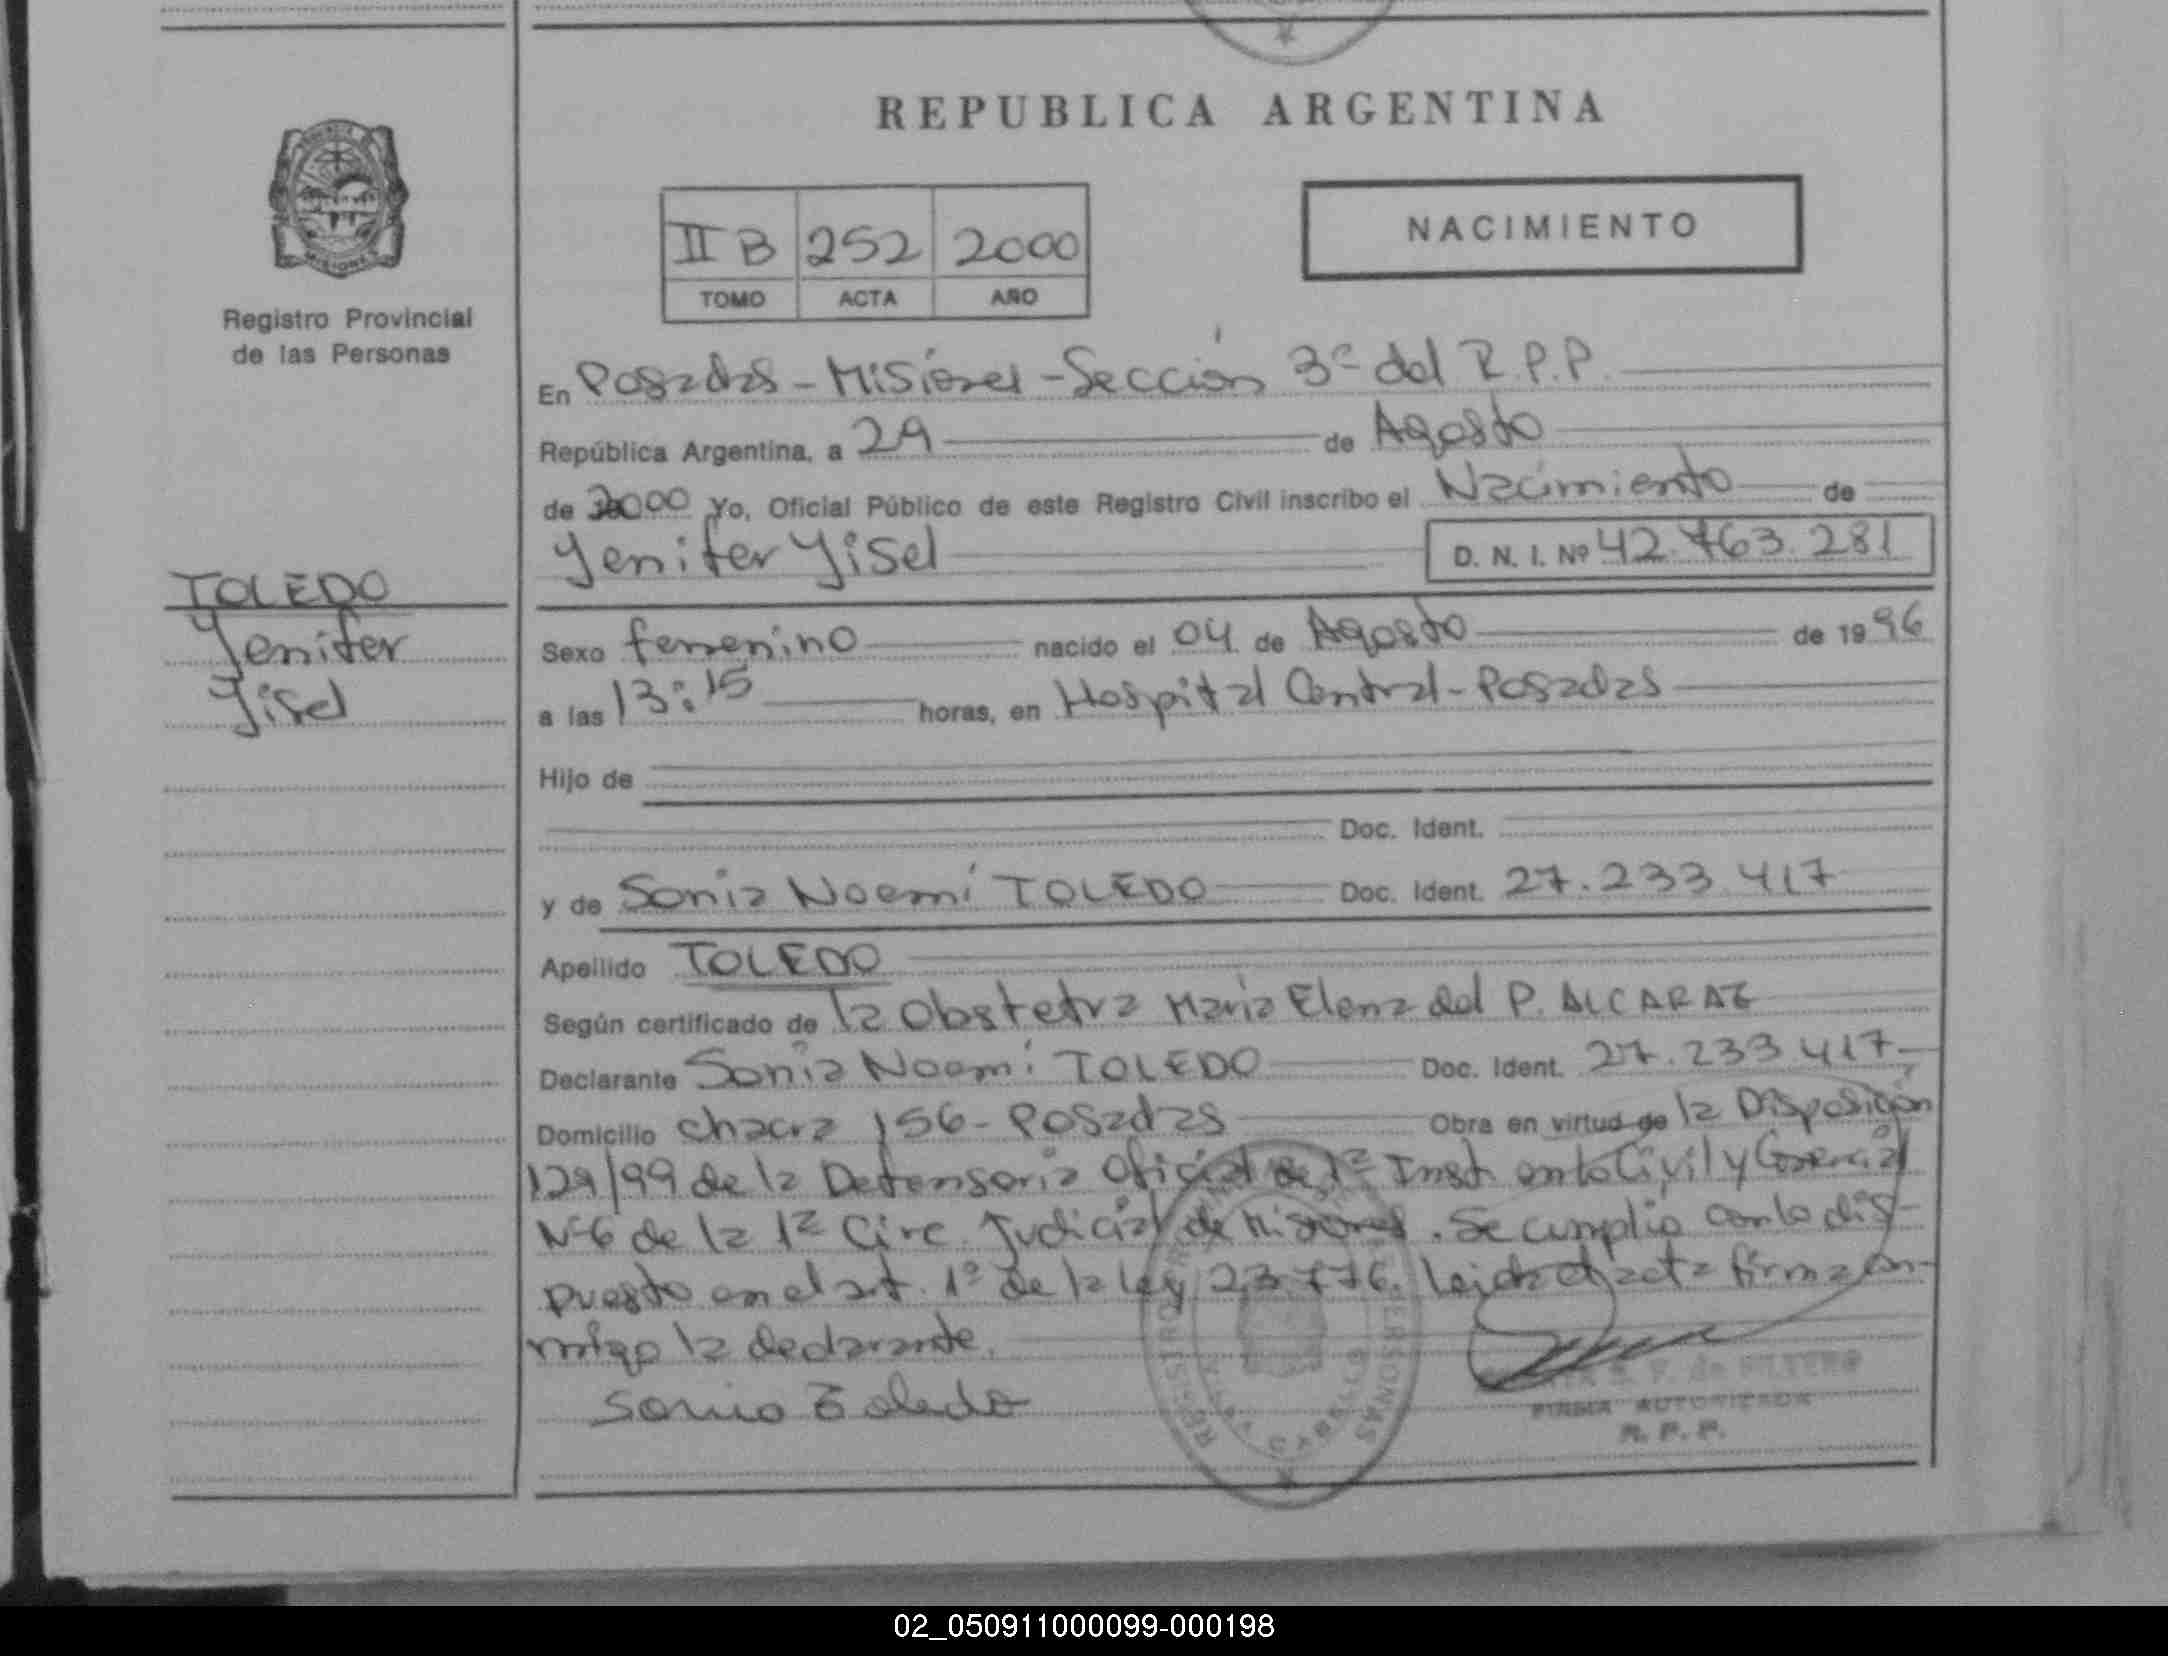 REPUBLICA ARGENTINA
NACIMIENTO
II B 252 2000
TOMO ACTA AÑO
MISIONES
Registro Provincial
de las Personas
En Posadas - Misiones - Sección 3ª del R.P.P.
República Argentina, a 29 de Agosto
de 2000 Yo, Oficial Público de este Registro Civil inscribo el Nacimiento de
Yenifer Yisel D. N. I. Nº 42.763.281
TOLEDO
Yenifer
Yisel
Sexo femenino nacido el 04 de Agosto de 1996
a las 13:15 horas, en Hospital Central - Posadas
Hijo de
Doc. Ident.
y de Sonia Noemí TOLEDO Doc. Ident. 27.233.417
Apellido TOLEDO
Según certificado de la Obstetra Maria Elena del P. ALCARAZ
Declarante Sonia Noemí TOLEDO Doc. Ident. 27.233.417
Domicilio chacra 156 - Posadas Obra en virtud de la Disposición
129/99 de la Defensoria Oficial de 1ª Inst. en lo Civil y Comercial
Nº6 de la 1ª Circ. Judicial de Misiones. Se cumplio con lo dis-
puesto en el art. 1º de la ley 23.776. Leida el acta firma con-
migo la declarante.
Sonia Toledo
de PILTERO
FIRMA AUTORIZADA
R. P. P.
02_050911000099-000198